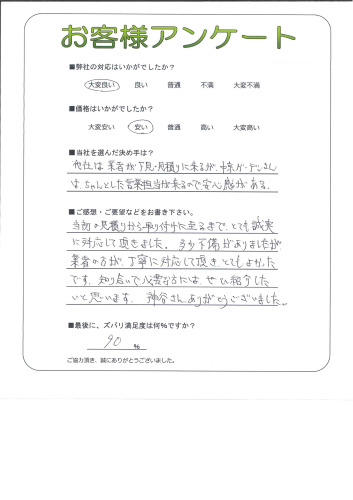 お客様アンケート
■弊社の対応はいかがでしたか?
大変良い 良い 普通 不満 大変不満
■価格はいかがでしたか?
大変安い 安い 普通 高い 大変高い
■当社を選んだ決め手は?
他社は業者が下見・見積りに来るが、ガーデンさん
は、ちゃんとした営業担当が来るので安心感がある。
■ご感想・ご要望などをお書き下さい。
当初の見積りから取り付けに至るまで、とても誠実
に対応して頂きました。多少不備がありましたが
業者の方が、丁寧に対応して頂きとてもよかった
です。知り合いで必要な方には、ぜひ紹介した
いと思います。神谷さんありがとうございました。
■最後に、ズバリ満足度は何%ですか?
90 %
ご協力頂き、誠にありがとうございました。